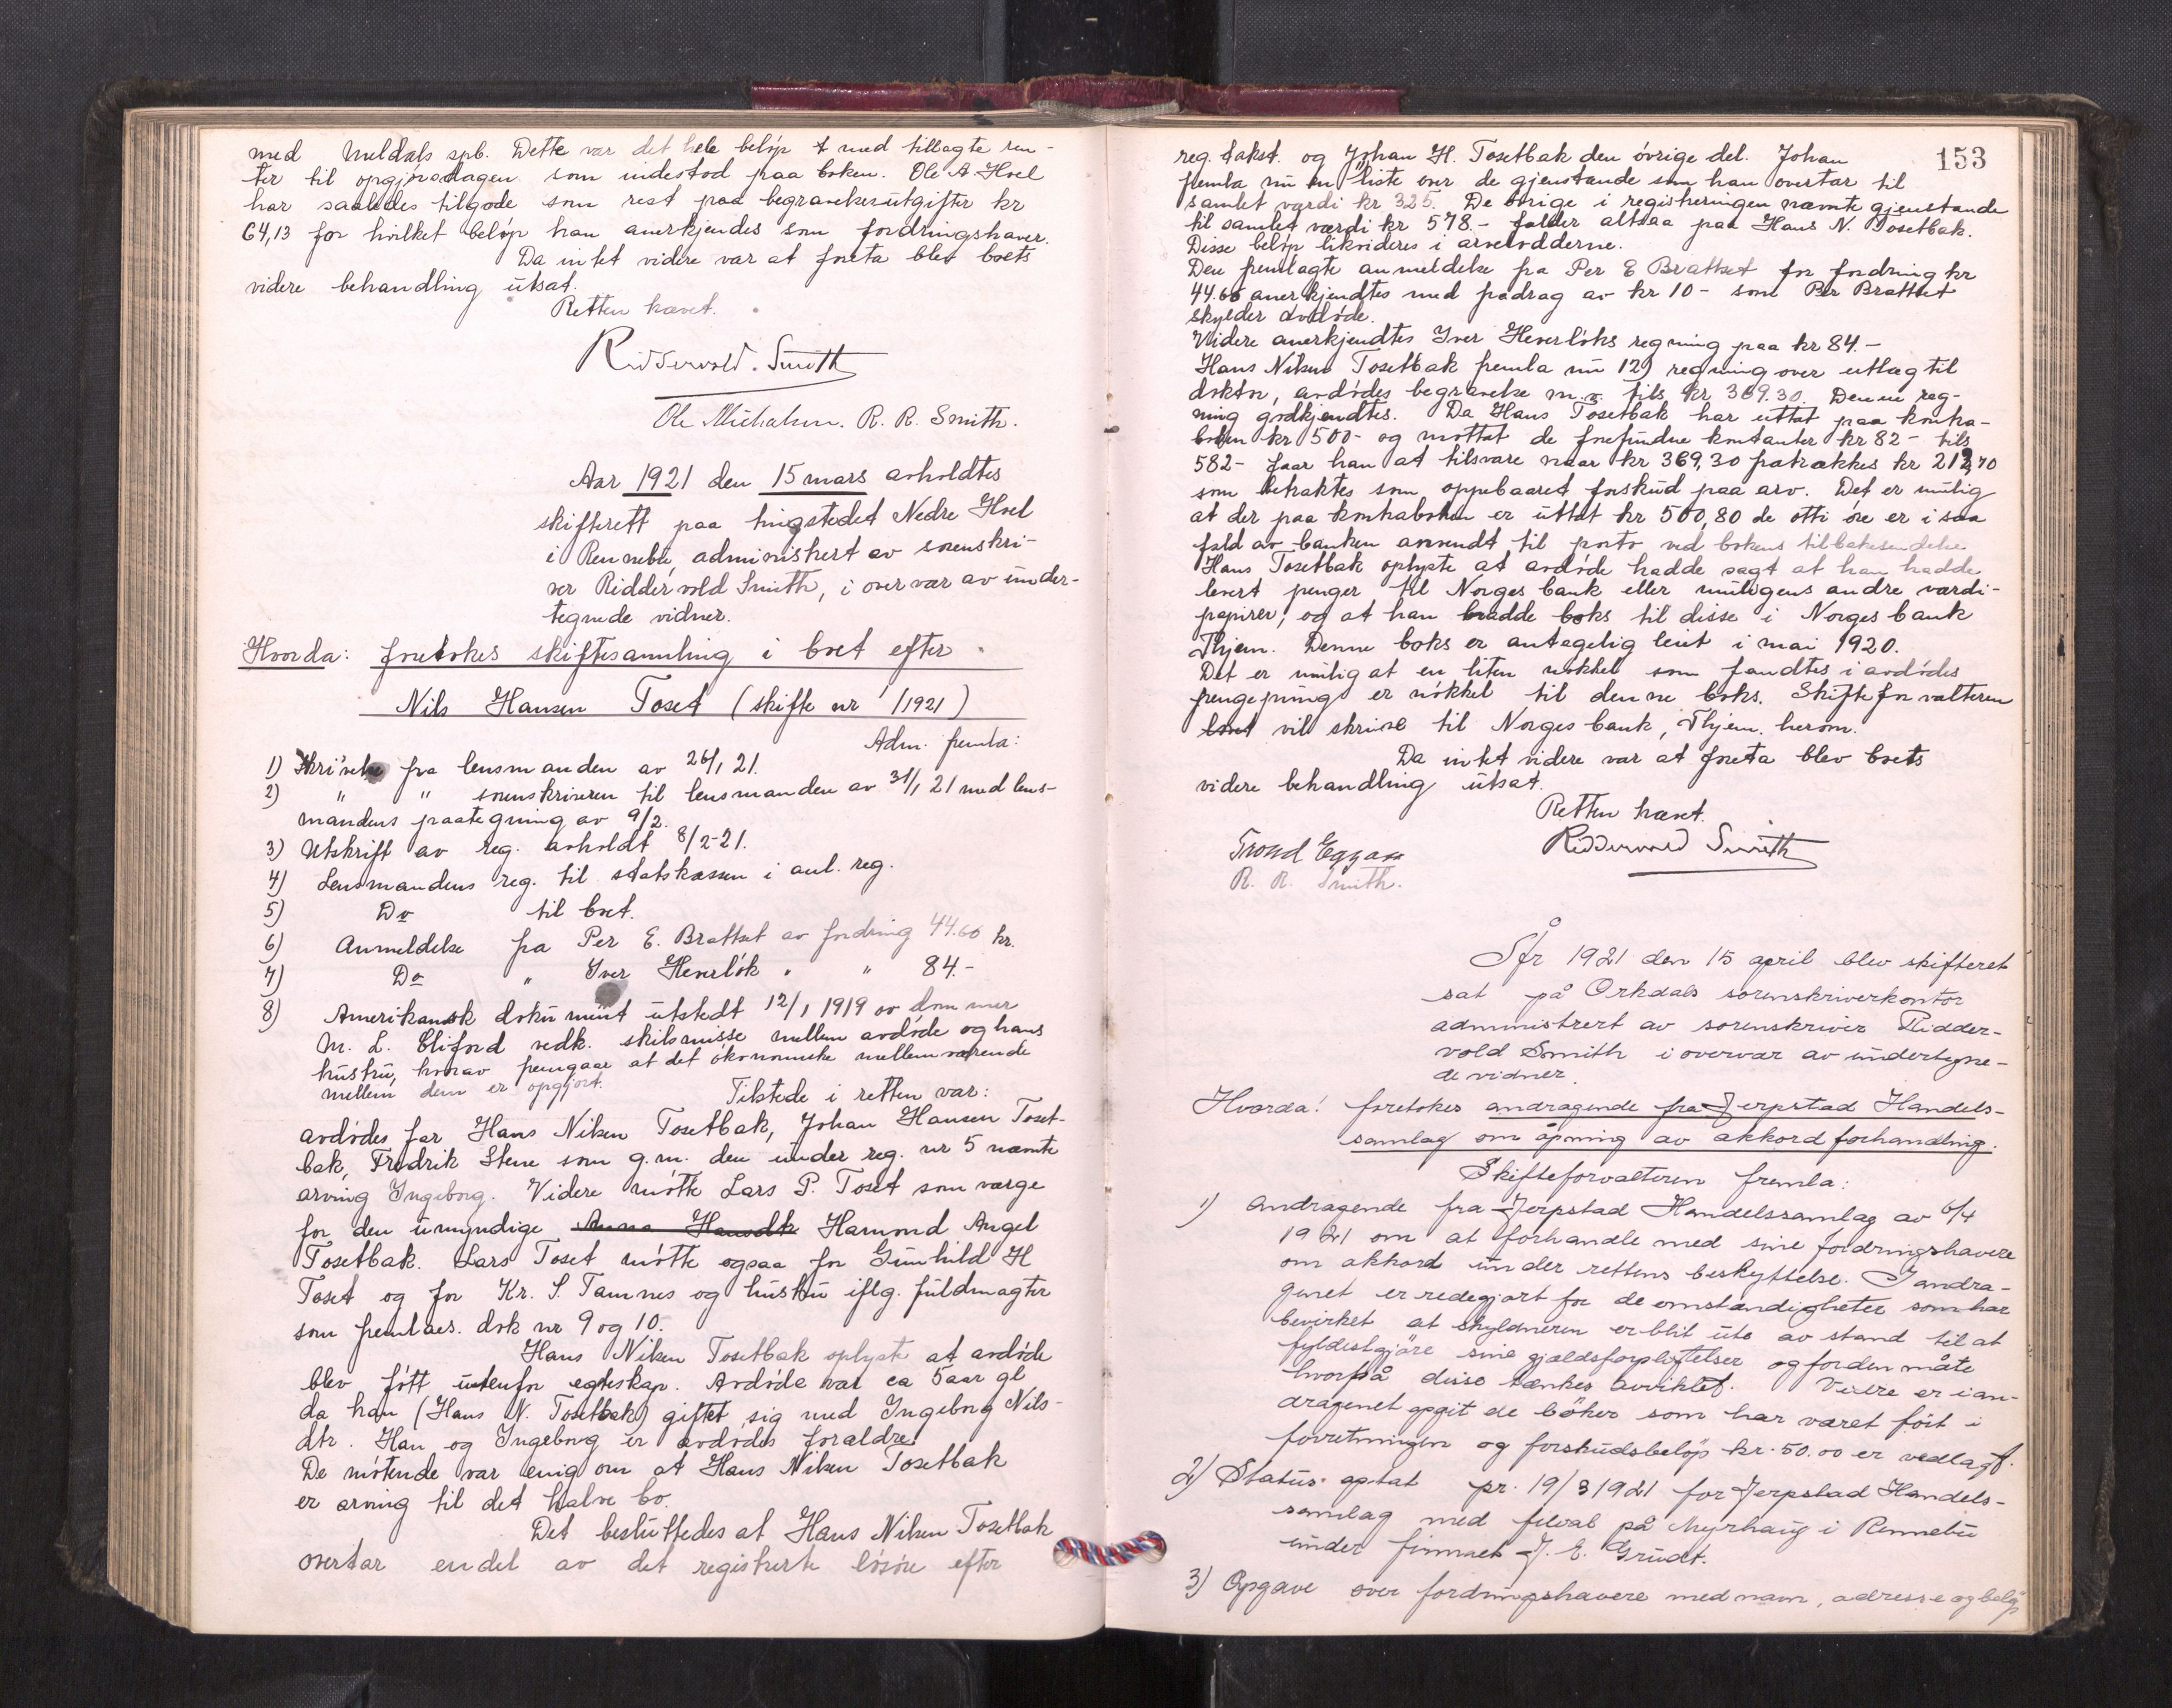 med Meldals spb. Dette var det hele beløp + med tillagte ren-
ter til opgjørsdagen som indestod paa boken. Ole A. Hoel
har saaledes tilgode som rest paa begravelsesutgifter kr
64,13 for hvilket beløp han anerkjendes som fordringshaver.
Da intet videre var at foreta blev boets
videre behandling utsat.
Retten hævet.
Ridderwold. Smith
Ole Michalsen. R. R. Smith.
Aar 1921 den 15 mars avholdtes
skifterett paa tingstedet Nedre Hoel
i Rennebu, administrert av sorenskri-
ver Riddervold Smith, i overvær av under-
tegnede vidner.
Hvorda: foretokes skiftesamling i boet efter
Nils Hansen Toset (skifte nr 1/1921)
Adm. fremla:
1) Skrivelse fra lensmanden av 26/1 21.
2) " " sorenskriveren til lensmanden av 31/1 21 med lens-
mandens paategning av 9/2.
3) Utskrift av reg. avholdt 8/2-21.
4) Lensmandens reg. til statskassen i anl. reg.
5) Do til boet.
6) Anmeldelse fra Per E. Brattset av fordring 44.66 kr.
7) Do " Iver Heverløk " " 84.-
8) Amerikansk dokument utstedt 12/1 1919 av dommer
M. L. Cliford vedk. skilsmisse mellem avdøde og hans
hustru, hvorav fremgaar at det økonomiske mellemværende
mellem dem er opgjort.
Tilstede i retten var:
avdødes far Hans Nilsen Tosetbak, Johan Hansen Toset-
bak, Fredrik Stene som g.m. den under reg. nr 5 nævnte
arving Ingeborg. Videre møtte Lars P. Toset som værge
for den umyndige Hamond Angel
Tosetbak. Lars Toset møtte ogsaa for Gunhild H
Toset og for Kr. S. Tamnes og hustru iflg. fuldmagter
som fremlaes. dok nr 9 og 10.
Hans Nilsen Tosetbak oplyste at avdøde
blev født utenfor egteskap. Avdøde var ca 5 aar gl
da han (Hans N. Tosetbak) giftet sig med Ingeborg Nils-
dtr. Han og Ingeborg er avdødes forældre.
De møtende var enig om at Hans Nilsen Tosetbak
er arving til det halve bo.
Det besluttedes at Hans Nilsen Tosetbak
overtar endel av det registrerte løsøre efter
153
reg. takst. og Johan H. Tosetbak den øvrige del. Johan
fremla nu en liste over de gjenstande som han overtar til
samlet værdi kr 325. De øvrige i registreringen nævnte gjenstande
til samlet værdi kr 578.- falder altsaa paa Hans N. Tosetbak.
Disse beløp likvideres i arvelodderne.
Den fremlagte anmeldelse fra Per E Brattset for fordring kr
44.66 anerkjendtes med fradrag av kr 10- som Per Brattset
skylder avdøde.
Videre anerkjendtes Iver Heverløks regning paa kr 84.-
Hans Nilsen Tosetbak fremla nu 12) regning over utlæg til
doktor, avdødes begravelse m.v. tils kr 369.30. Denne reg-
ning godkjendtes. Da Hans Tosetbak har uttat paa kontra-
boken kr 500- og mottat de forefundne kontanter kr 82- tils
582- faar han at tilsvare naar kr 369,30 fratrækkes kr 212,70
som betraktes som oppebaaret forskud paa arv. Det er mulig
at der paa kontraboken er uttat kr 500,80 de otti øre er i saa
fald av banken anvendt til porto ved bokens tilbakesendelse
Hans Tosetbak oplyste at avdøde hadde sagt at han hadde
levert penger til Norges bank eller muligens andre værdi-
papirer, og at han hadde boks til disse i Norges bank
Thjem. Denne boks er antagelig leiet i mai 1920.
Det er mulig at en liten nøkkel som fandtes i avdødes
pengepung er nøkkel til denne boks. Skifteforvalteren
vil skrive til Norges bank, Thjem. herom.
Da intet videre var at foreta blev boets
videre behandling utsat.
Retten hævet.
Ridderwold Smith
Trond Eggan
R. R. Smith.
År 1921 den 15 april blev skifteret
sat på Orkdals sorenskriverkontor
administrert av sorenskriver Ridder-
vold Smith i overvær av undertegne-
de vidner.
Hvorda: foretokes andragende fra Jerpstad Handels-
samlag om åpning av akkordforhandling.
Skifteforvalteren fremla:
1) Andragende fra Jerpstad Handelssamlag av 6/4
1921 om at forhandle med sine fordringshavere
om akkord under rettens beskyttelse. I andra-
genet er redegjort for de omstændigheter som har
bevirket at skyldneren er blit ute av stand til at
fyldestgjøre sine gjældsforpliktelser og for den måte
hvorpå disse tænkes avviklet. Videre er i an-
dragenet opgit de bøker som har været ført i
forretningen og forskudsbeløp kr. 50.00 er vedlagt.
2) Status optat pr. 19/3 1921 for Jerpstad Handels-
samlag med filial på Myrhaug i Rennebu
under firmaet J. E. Grudt.
3) Opgave over fordringshavere med navn, adresse og beløp